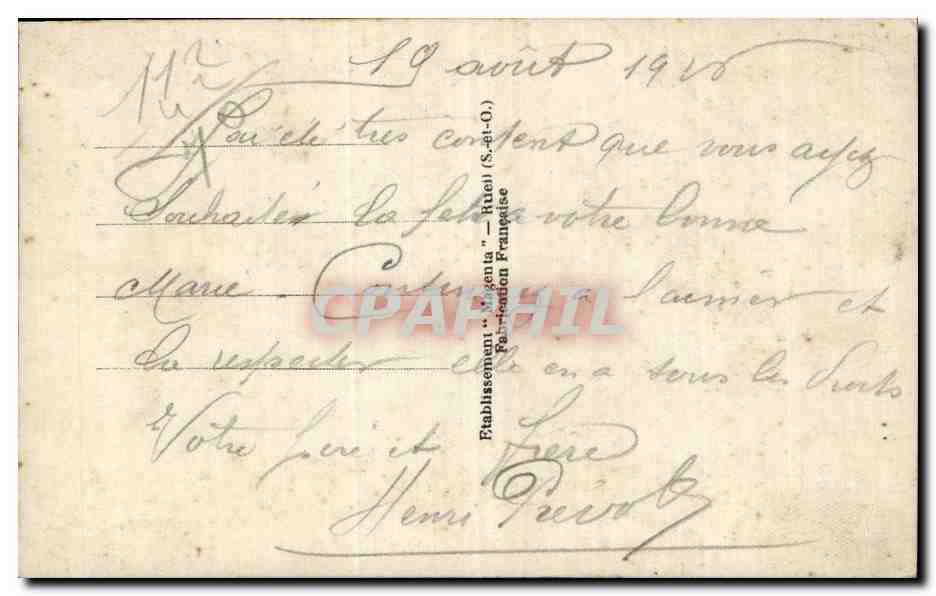 19 août 1926
J'ai été très content que vous ayez
Souhaitér la fete a votre bonne
Marie Continuez a l'aimer et
la respecter elle en a tous les droits
Votre père et frère
Henri Prévot
Etablissement "Magenta" — Rueil (S.-et-O.)
Fabrication Française
CPAPHIL